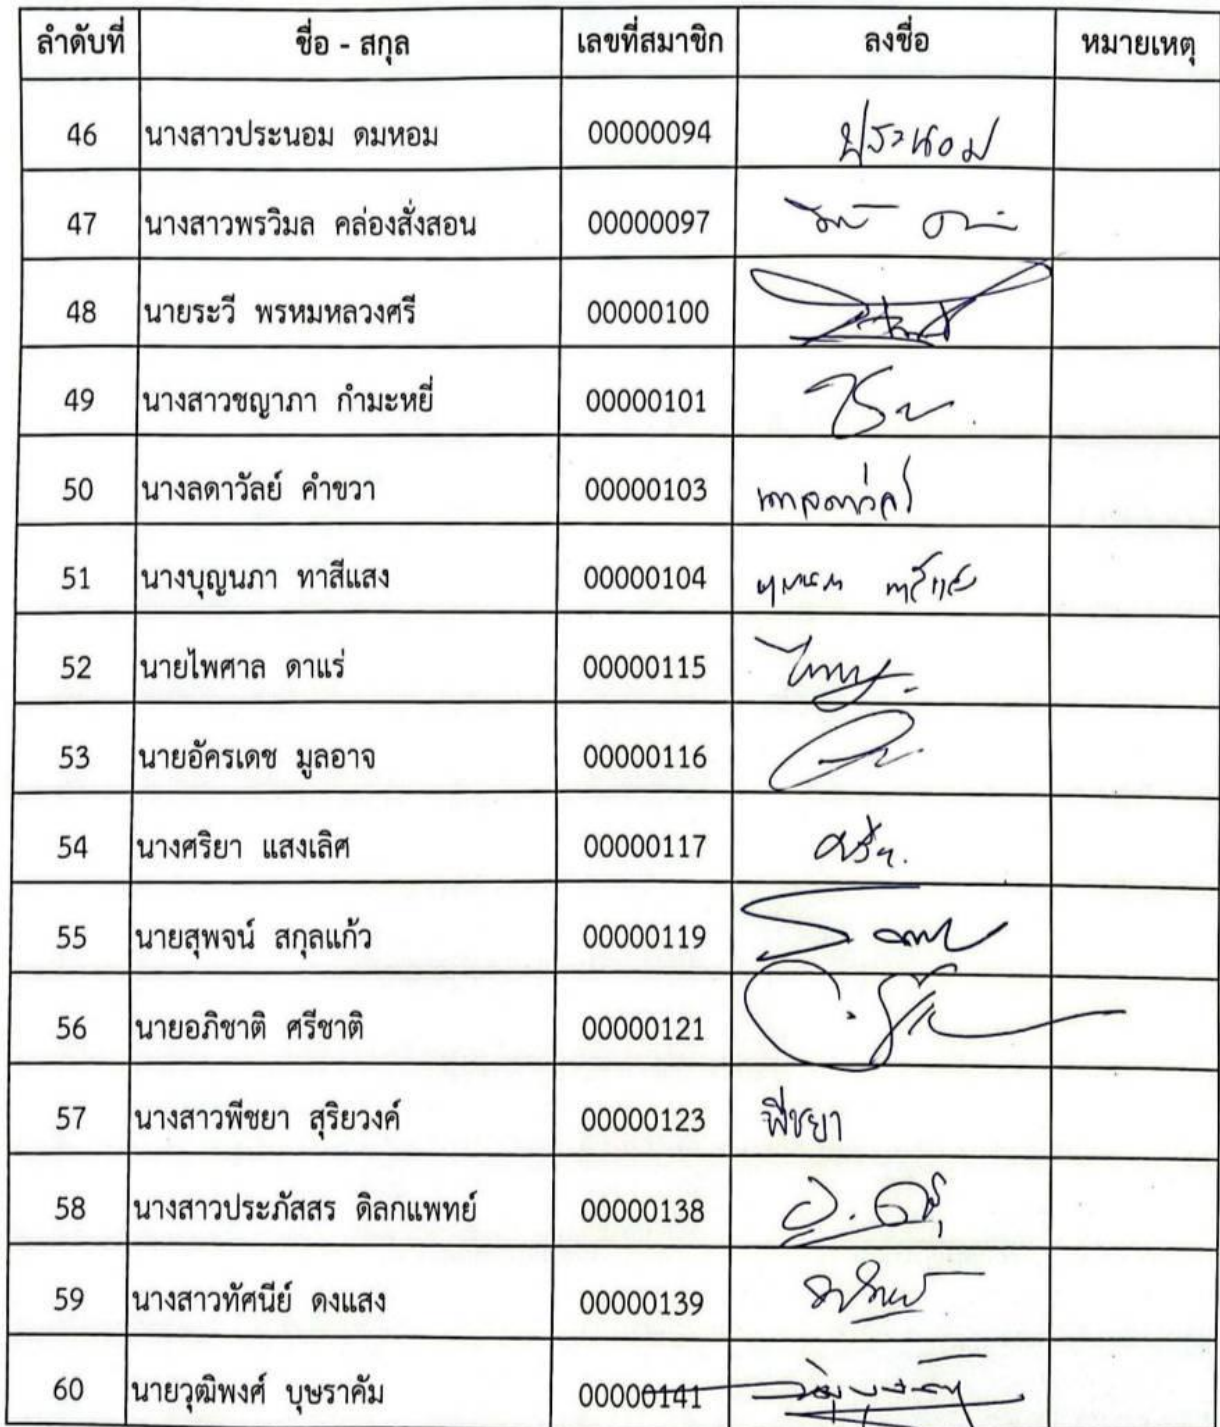 ลำดับที่ ชื่อ - สกุล เลขที่สมาชิก ลงชื่อ หมายเหตุ
46 นางสาวประนอม ดมหอม 00000094 ประนอม
47 นางสาวพรวิมล คล่องสั่งสอน 00000097
48 นายระวี พรหมหลวงศรี 00000100
49 นางสาวชญาภา กำมะหยี่ 00000101
50 นางลดาวัลย์ คำขวา 00000103
51 นางบุญนภา ทาสีแสง 00000104
52 นายไพศาล ดาแร่ 00000115
53 นายอัครเดช มูลอาจ 00000116
54 นางศริยา แสงเลิศ 00000117
55 นายสุพจน์ สกุลแก้ว 00000119
56 นายอภิชาติ ศรีชาติ 00000121
57 นางสาวพีชยา สุริยวงค์ 00000123 พีชยา
58 นางสาวประภัสสร ดิลกแพทย์ 00000138
59 นางสาวทัศนีย์ ดงแสง 00000139
60 นายวุฒิพงศ์ บุษราคัม 00000141